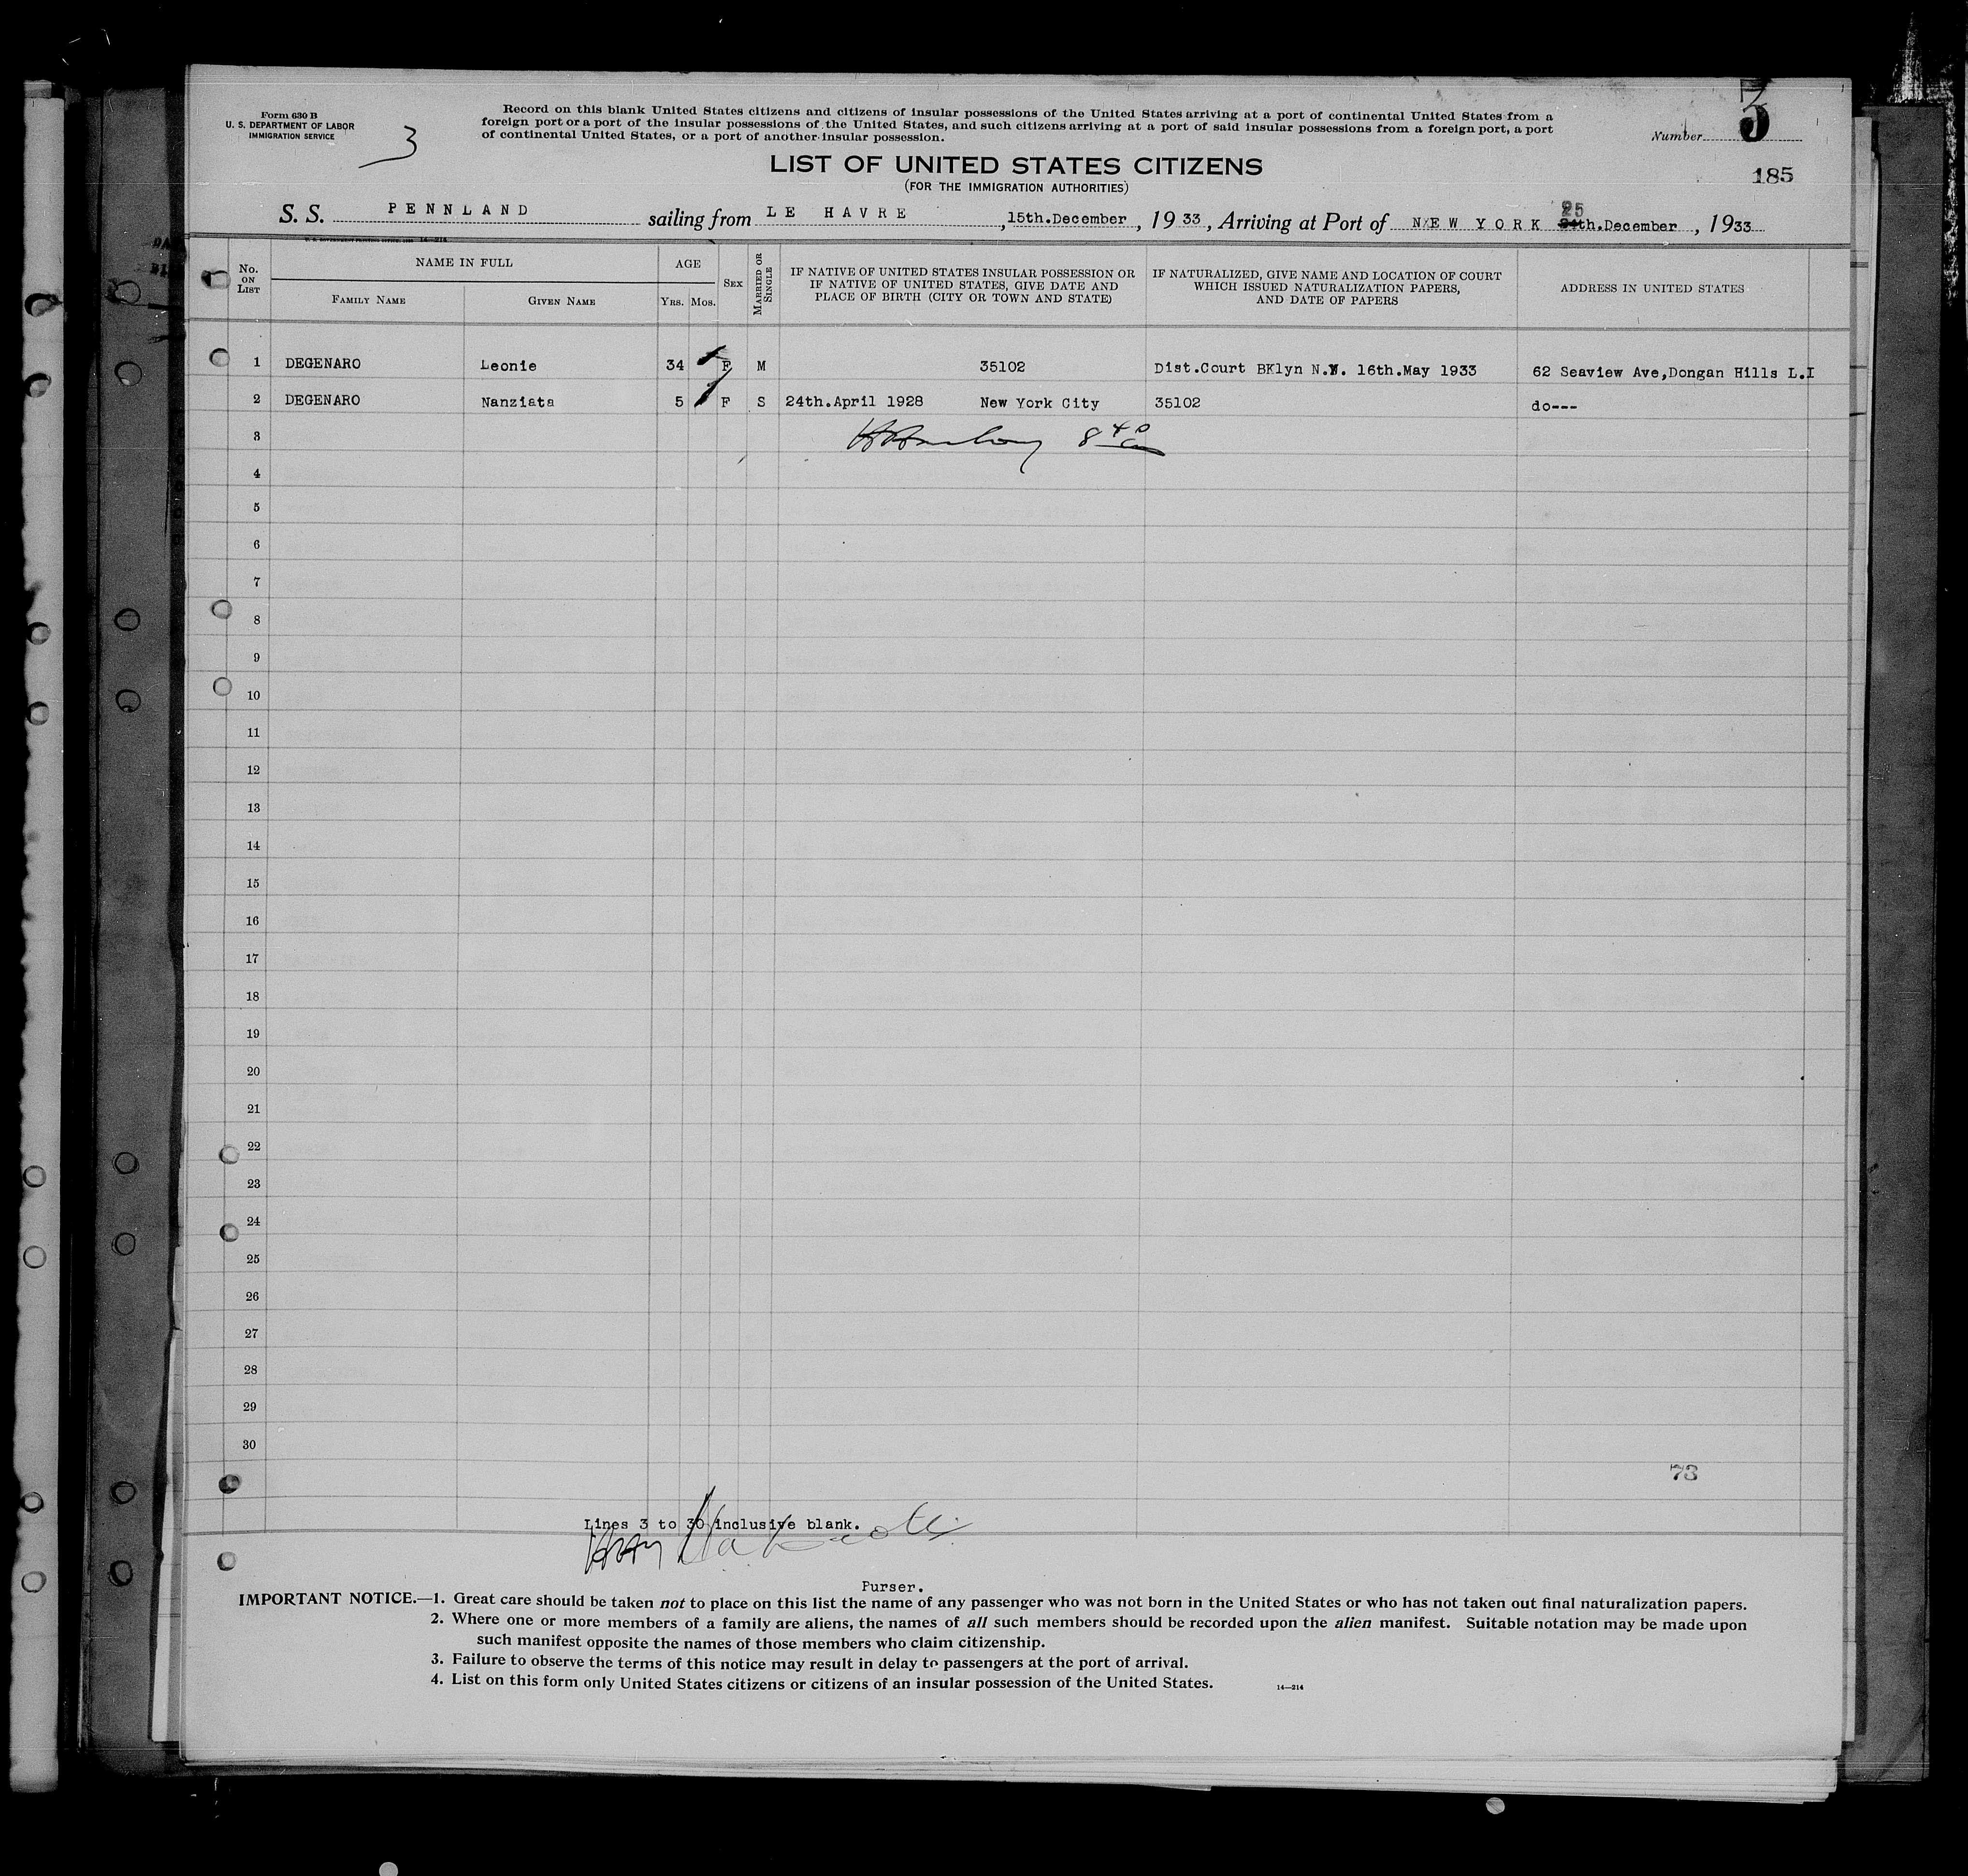 Form 630 B
U. S. DEPARTMENT OF LABOR
IMMIGRATION SERVICE
3
Record on this blank United States citizens and citizens of insular possessions of the United States arriving at a port of continental United States from a
foreign port or a port of the insular possessions of the United States, and such citizens arriving at a port of said insular possessions from a foreign port, a port
of continental United States, or a port of another insular possession.
Number 3
LIST OF UNITED STATES CITIZENS
(FOR THE IMMIGRATION AUTHORITIES)
185
S. S. PENNLAND sailing from LE HAVRE, 15th.December, 1933, Arriving at Port of NEW YORK 25 24th.December, 1933
No. ON LIST
NAME IN FULL
FAMILY NAME
GIVEN NAME
AGE
YRS. MOS.
SEX
MARRIED OR SINGLE
IF NATIVE OF UNITED STATES INSULAR POSSESSION OR
IF NATIVE OF UNITED STATES, GIVE DATE AND
PLACE OF BIRTH (CITY OR TOWN AND STATE)
IF NATURALIZED, GIVE NAME AND LOCATION OF COURT
WHICH ISSUED NATURALIZATION PAPERS,
AND DATE OF PAPERS
ADDRESS IN UNITED STATES
1 DEGENARO Leonie 34 F M 35102 Dist.Court BKlyn N.Y. 16th.May 1933 62 Seaview Ave,Dongan Hills L.I
2 DEGENARO Nanziata 5 F S 24th.April 1928 New York City 35102 do---
3
4
5
6
7
8
9
10
11
12
13
14
15
16
17
18
19
20
21
22
23
24
25
26
27
28
29
30
73
Lines 3 to 30 inclusive blank.
Purser.
IMPORTANT NOTICE.—1. Great care should be taken not to place on this list the name of any passenger who was not born in the United States or who has not taken out final naturalization papers.
2. Where one or more members of a family are aliens, the names of all such members should be recorded upon the alien manifest. Suitable notation may be made upon
such manifest opposite the names of those members who claim citizenship.
3. Failure to observe the terms of this notice may result in delay to passengers at the port of arrival.
4. List on this form only United States citizens or citizens of an insular possession of the United States.
14—214